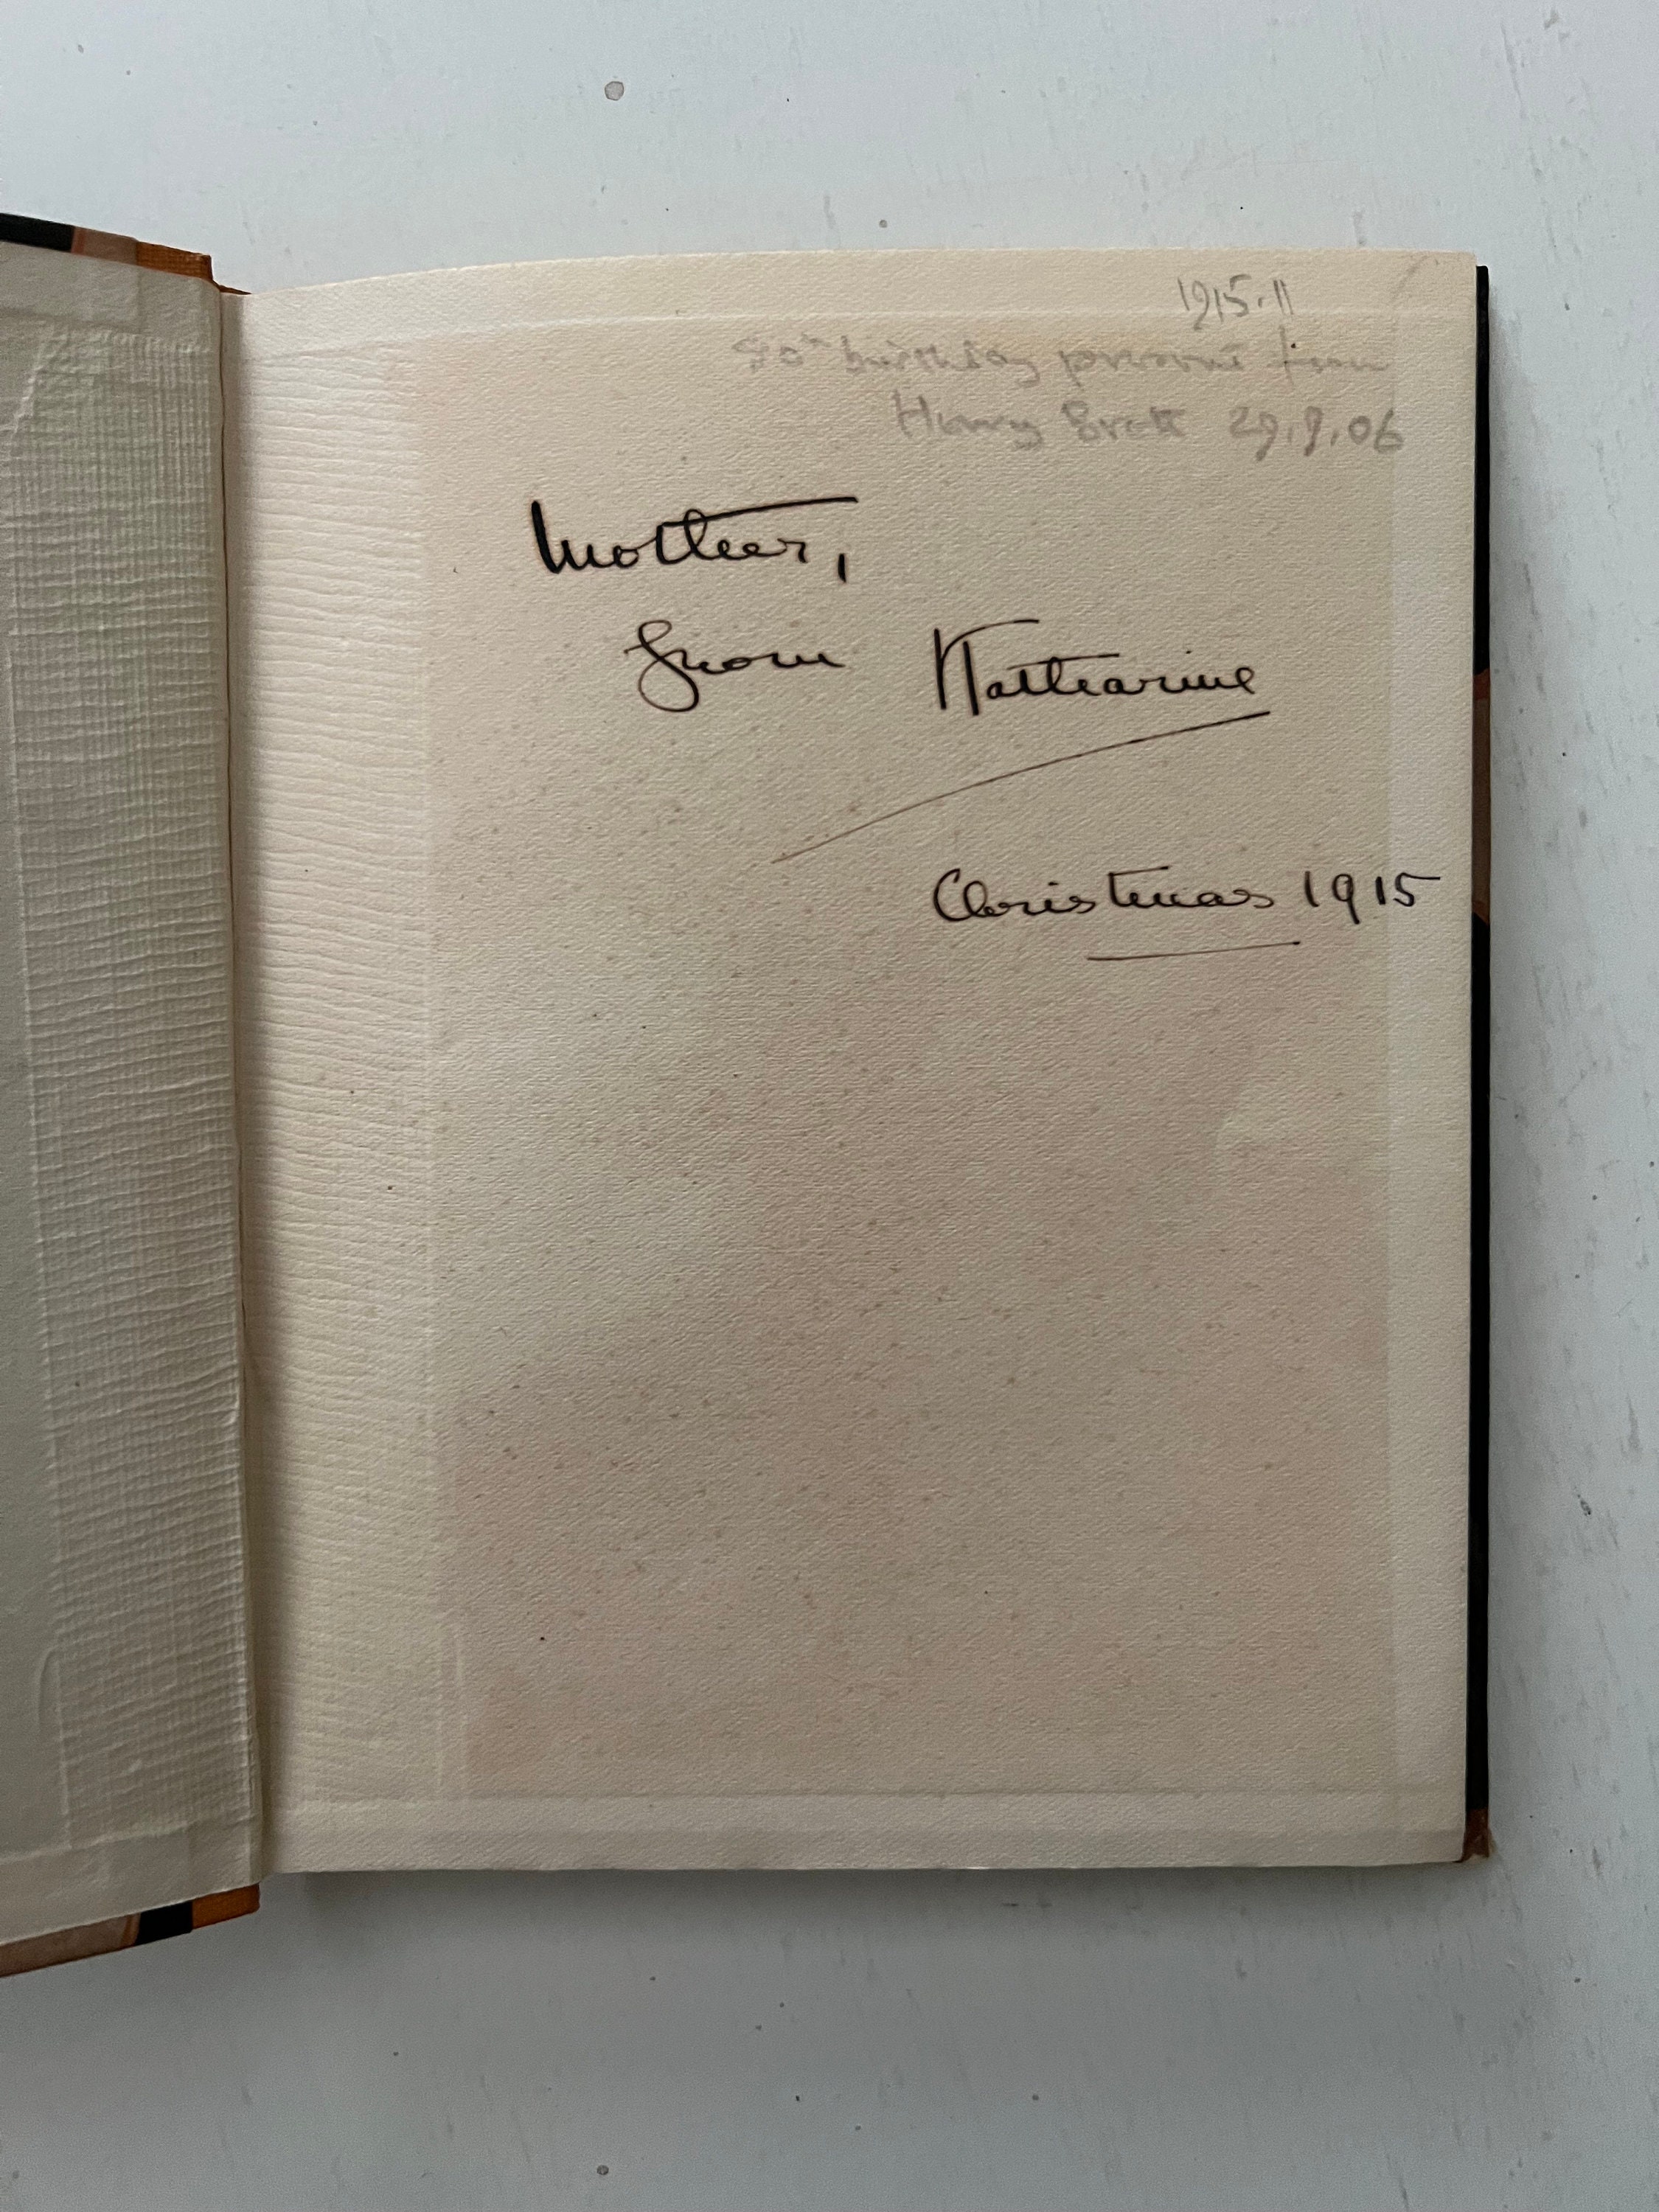 1915.11
birthday present from
Henry 29.9.06
Mother,
from Katharine
Christmas 1915